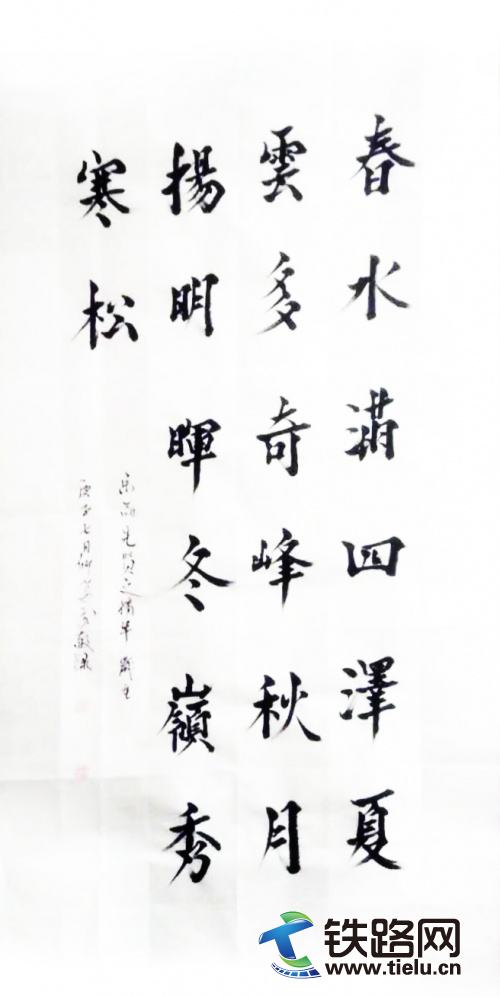 春水滿四澤夏
雲多奇峰秋月
揚明暉冬嶺秀
寒松
庚子七月
铁路网
www.tielu.cn